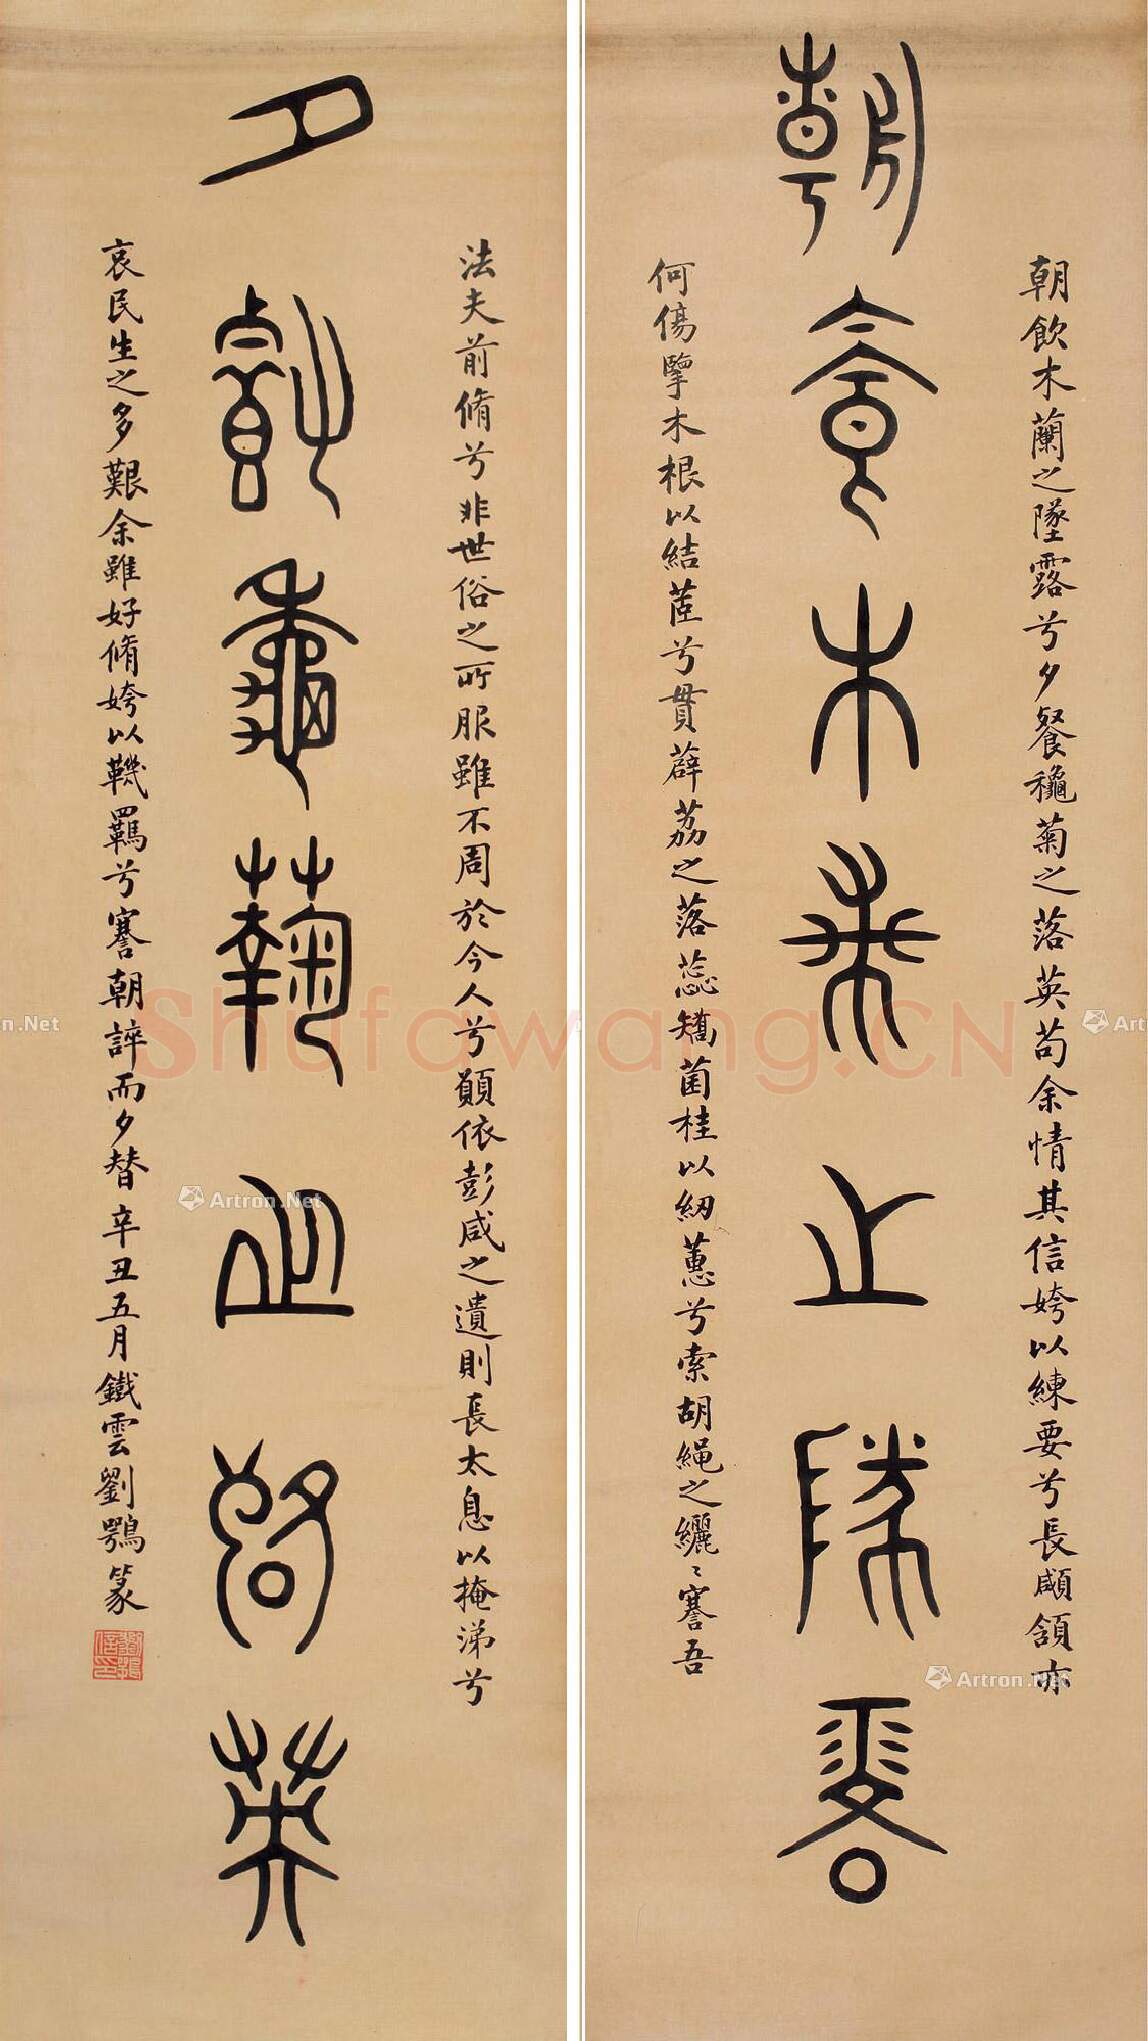 朝飲木蘭之墜露
朝飲木蘭之墜露兮夕餐龝菊之落英苟余情其信姱以練要兮長顑頷亦
何傷擥木根以結茝兮貫薜荔之落蕊矯菌桂以紉蕙兮索胡繩之纚〻謇吾
夕餐龝菊之落英
法夫前脩兮非世俗之所服雖不周於今人兮願依彭咸之遺則長太息以掩涕兮
哀民生之多艱余雖好脩姱以鞿羈兮謇朝誶而夕替 辛丑五月鐵雲劉鶚篆
Shufawang.CN
Artron.Net
Artron.Net